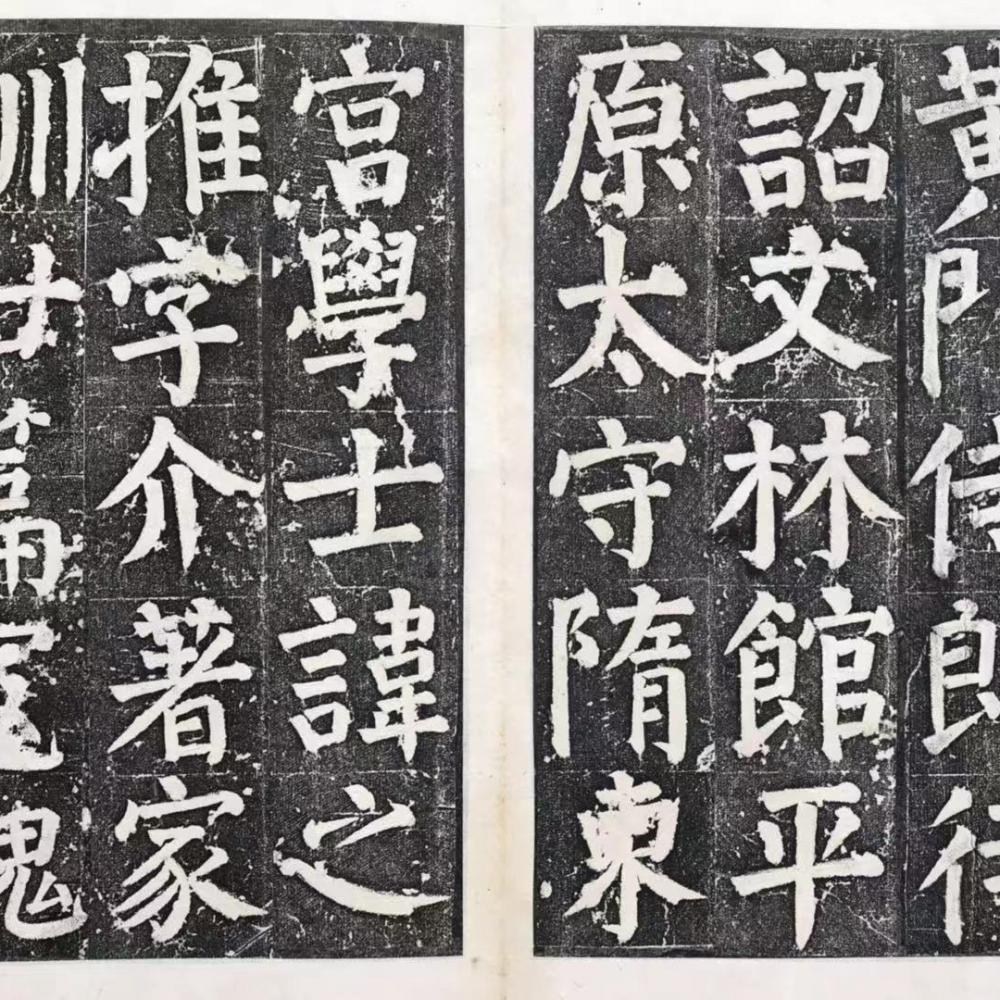 黃門侍郎待
詔文林館平
原太守隋東
宮學士諱之
推字介著家
訓廿篇冤魂